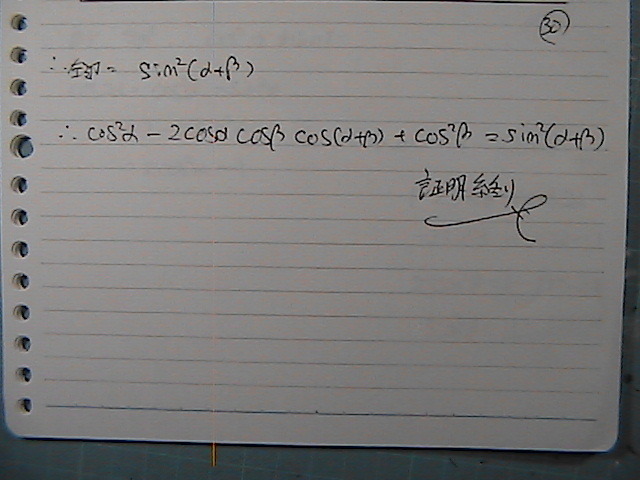 ㉚
∴ 左辺 = sin²(α+β)
∴ cos²α − 2cosα cosβ cos(α+β) + cos²β = sin²(α+β)
証明終り